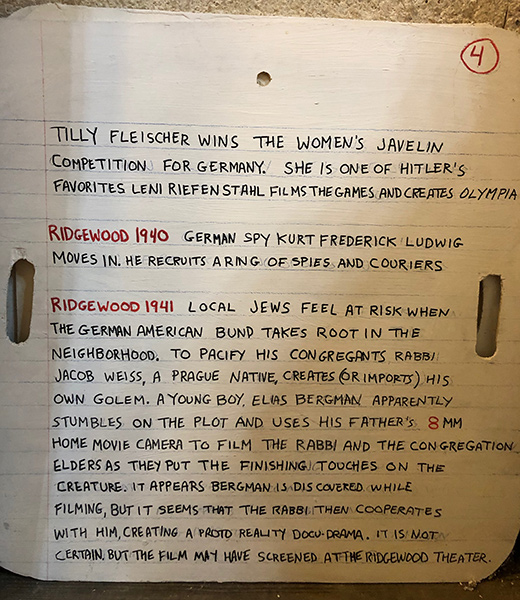 4
TILLY FLEISCHER WINS THE WOMEN'S JAVELIN
COMPETITION FOR GERMANY. SHE IS ONE OF HITLER'S
FAVORITES LENI RIEFENSTAHL FILMS THE GAMES AND CREATES OLYMPIA
RIDGEWOOD 1940 GERMAN SPY KURT FREDERICK LUDWIG
MOVES IN. HE RECRUITS A RING OF SPIES AND COURIERS
RIDGEWOOD 1941 LOCAL JEWS FEEL AT RISK WHEN
THE GERMAN AMERICAN BUND TAKES ROOT IN THE
NEIGHBORHOOD. TO PACIFY HIS CONGREGANTS RABBI
JACOB WEISS, A PRAGUE NATIVE, CREATES (OR IMPORTS) HIS
OWN GOLEM. A YOUNG BOY, ELIAS BERGMAN APPARENTLY
STUMBLES ON THE PLOT AND USES HIS FATHER'S 8 MM
HOME MOVIE CAMERA TO FILM THE RABBI AND THE CONGREGATION
ELDERS AS THEY PUT THE FINISHING TOUCHES ON THE
CREATURE. IT APPEARS BERGMAN IS DISCOVERED WHILE
FILMING, BUT IT SEEMS THAT THE RABBI THEN COOPERATES
WITH HIM, CREATING A PROTO REALITY DOCU-DRAMA. IT IS NOT
CERTAIN, BUT THE FILM MAY HAVE SCREENED AT THE RIDGEWOOD THEATER.